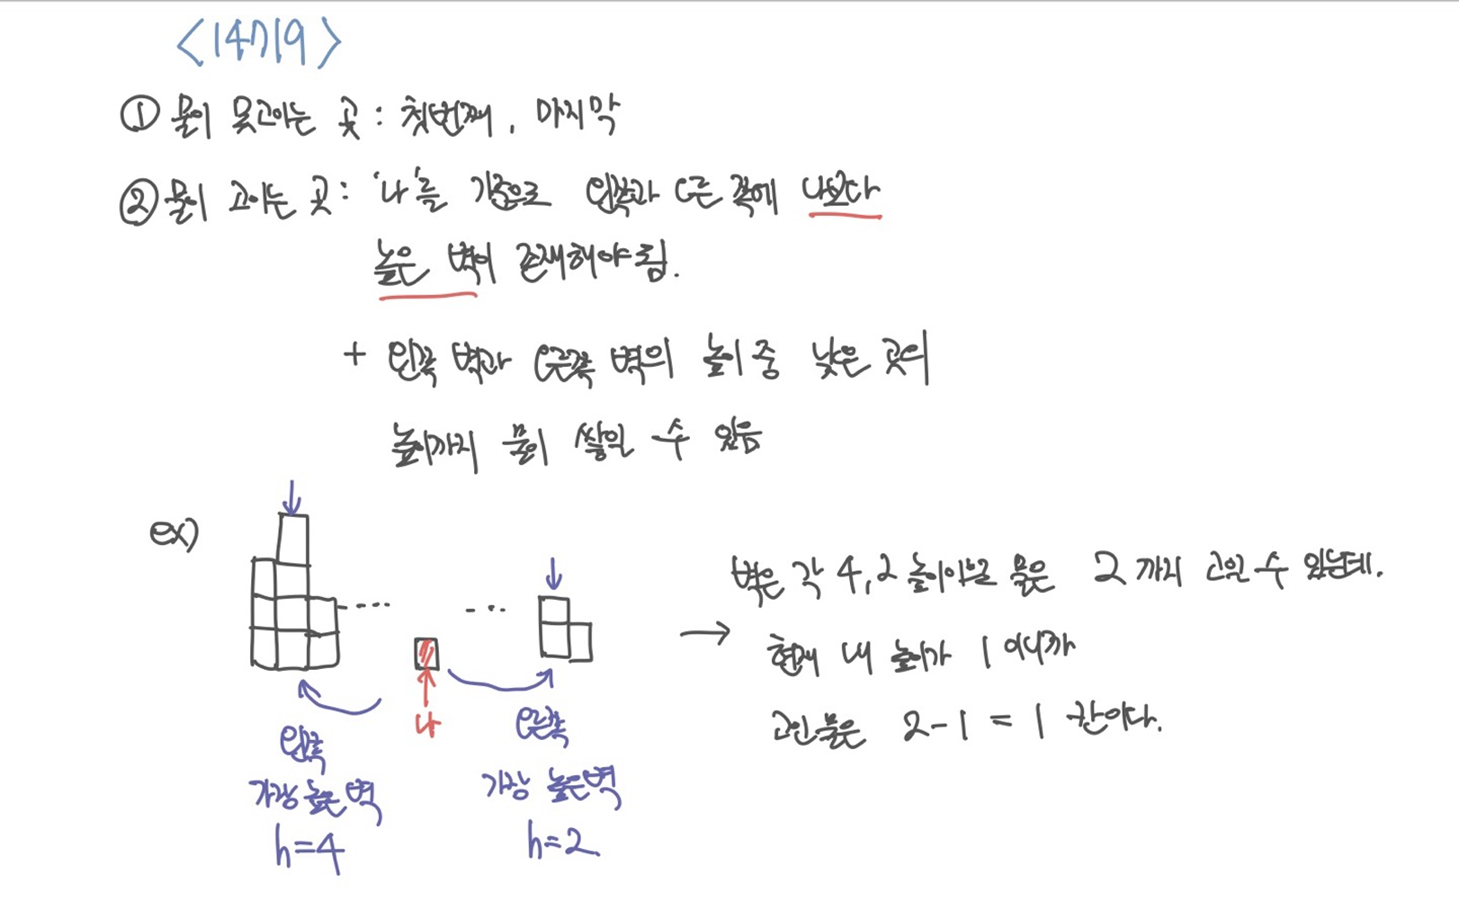 <14719>
① 물이 못고이는 곳 : 첫번째, 마지막
② 물이 고이는 곳 : '나'를 기준으로 왼쪽과 오른쪽에 나보다
높은 벽이 존재해야 됨.
+ 왼쪽 벽과 오른쪽 벽의 높이 중 낮은 곳의
높이까지 물이 쌓일 수 있음
ex)
벽은 각 4, 2 높이이므로 물은 2까지 고일 수 있는데.
→ 현재 내 높이가 1이니까
고인물은 2-1 = 1 칸이다.
나
왼쪽
가장 높은 벽
h=4
오른쪽
가장 높은벽
h=2